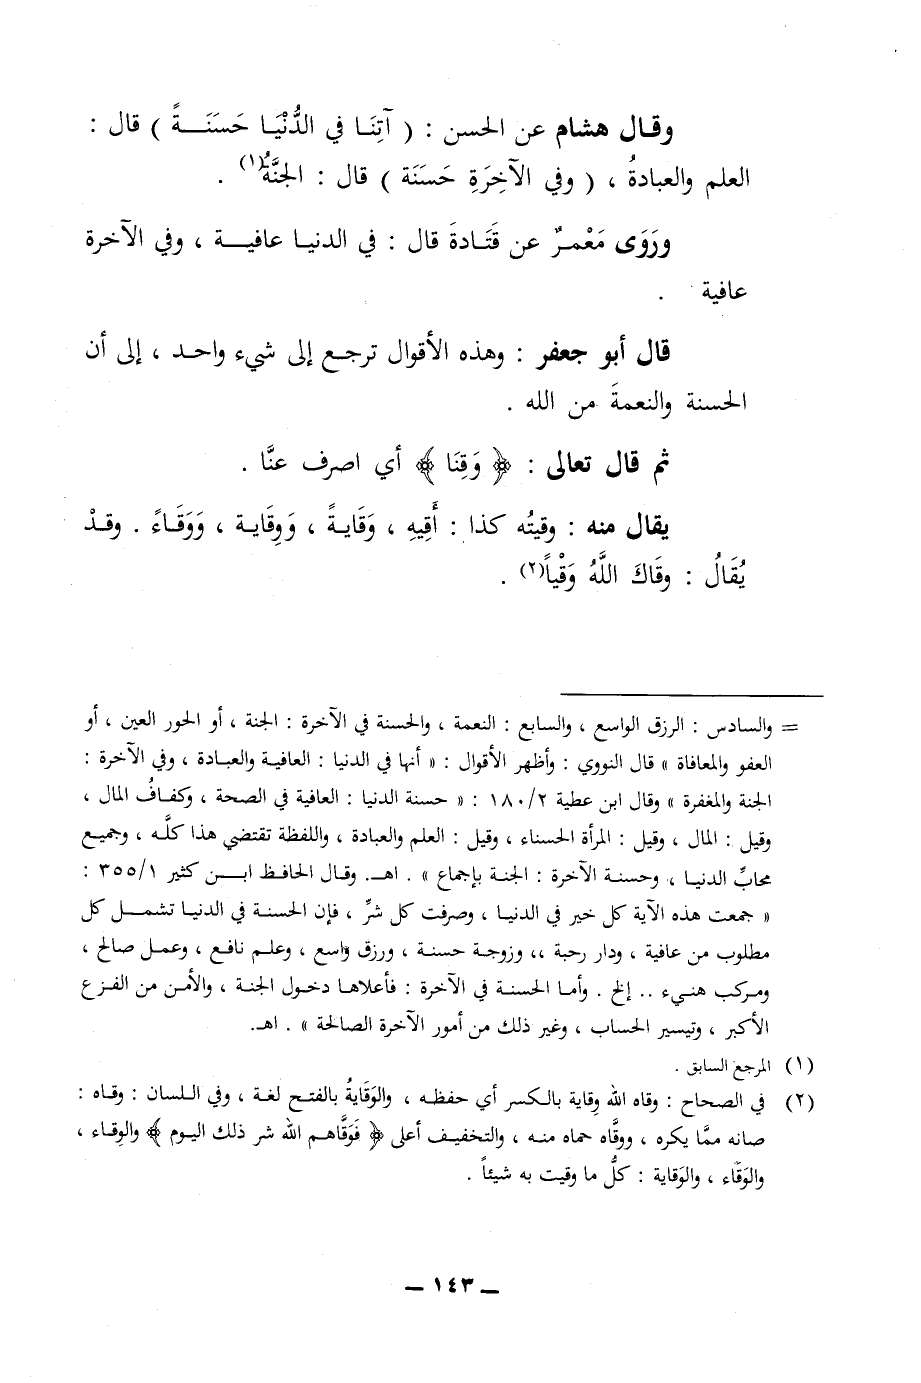 وقال هشام عن الحسن : ( آتِنَا في الدُّنْيَا حَسَنَةً ) قال :
العلم والعبادةُ ، ( وفي الآخِرَةِ حَسَنَة ) قال : الجنَّةُ(١) .
ورَوَى مَعْمرٌ عن قَتَادةَ قال : في الدنيا عافية ، وفي الآخرة
عافية .
قال أبو جعفر : وهذه الأقوال ترجع إلى شيء واحد ، إلى أن
الحسنة والنعمةَ من الله .
ثم قال تعالى : ﴿ وَقِنَا ﴾ أي اصرف عنَّا .
يقال منه : وقيتُه كذا : أَقِيهِ ، وَقَايةً ، وَوِقَاية ، وَوَقَاءً . وقدْ
يُقَالُ : وقَاكَ اللَّهُ وَقْياً(٢) .
= والسادس : الرزق الواسع ، والسابع : النعمة ، والحسنة في الآخرة : الجنة ، أو الحور العين ، أو
العفو والمعافاة » قال النووي : وأظهر الأقوال : « أنها في الدنيا : العافية والعبادة ، وفي الآخرة :
الجنة والمغفرة » وقال ابن عطية ١٨٠/٢ : « حسنة الدنيا : العافية في الصحة ، وكفافُ المال ،
وقيل : المال ، وقيل : المرأة الحسناء ، وقيل : العلم والعبادة ، واللفظة تقتضي هذا كلَّه ، وجميع
محابِّ الدنيا ، وحسنة الآخرة : الجنة بإجماع » . اهـ. وقال الحافظ ابن كثير ٣٥٥/١ :
« جمعت هذه الآية كل خير في الدنيا ، وصرفت كل شرٍّ ، فإن الحسنة في الدنيا تشمل كل
مطلوب من عافية ، ودار رحبة ،، وزوجة حسنة ، ورزق واسع ، وعلم نافع ، وعمل صالح ،
ومركب هنيء .. إلخ . وأما الحسنة في الآخرة : فأعلاها دخول الجنة ، والأمن من الفزع
الأكبر ، وتيسير الحساب ، وغير ذلك من أمور الآخرة الصالحة » . اهـ.
(١) المرجع السابق .
(٢) في الصحاح : وقاه الله وِقاية بالكسر أي حفظه ، والوَقايةُ بالفتح لغة ، وفي اللسان : وقاه :
صانه ممَّا يكره ، ووقَّاه حماه منه ، والتخفيف أعلى ﴿ فَوَقَّاهم الله شر ذلك اليوم ﴾ والوِقاء ،
والوَقَاء ، والوَقاية : كلُّ ما وقيت به شيئاً .
ـ ١٤٣ ـ